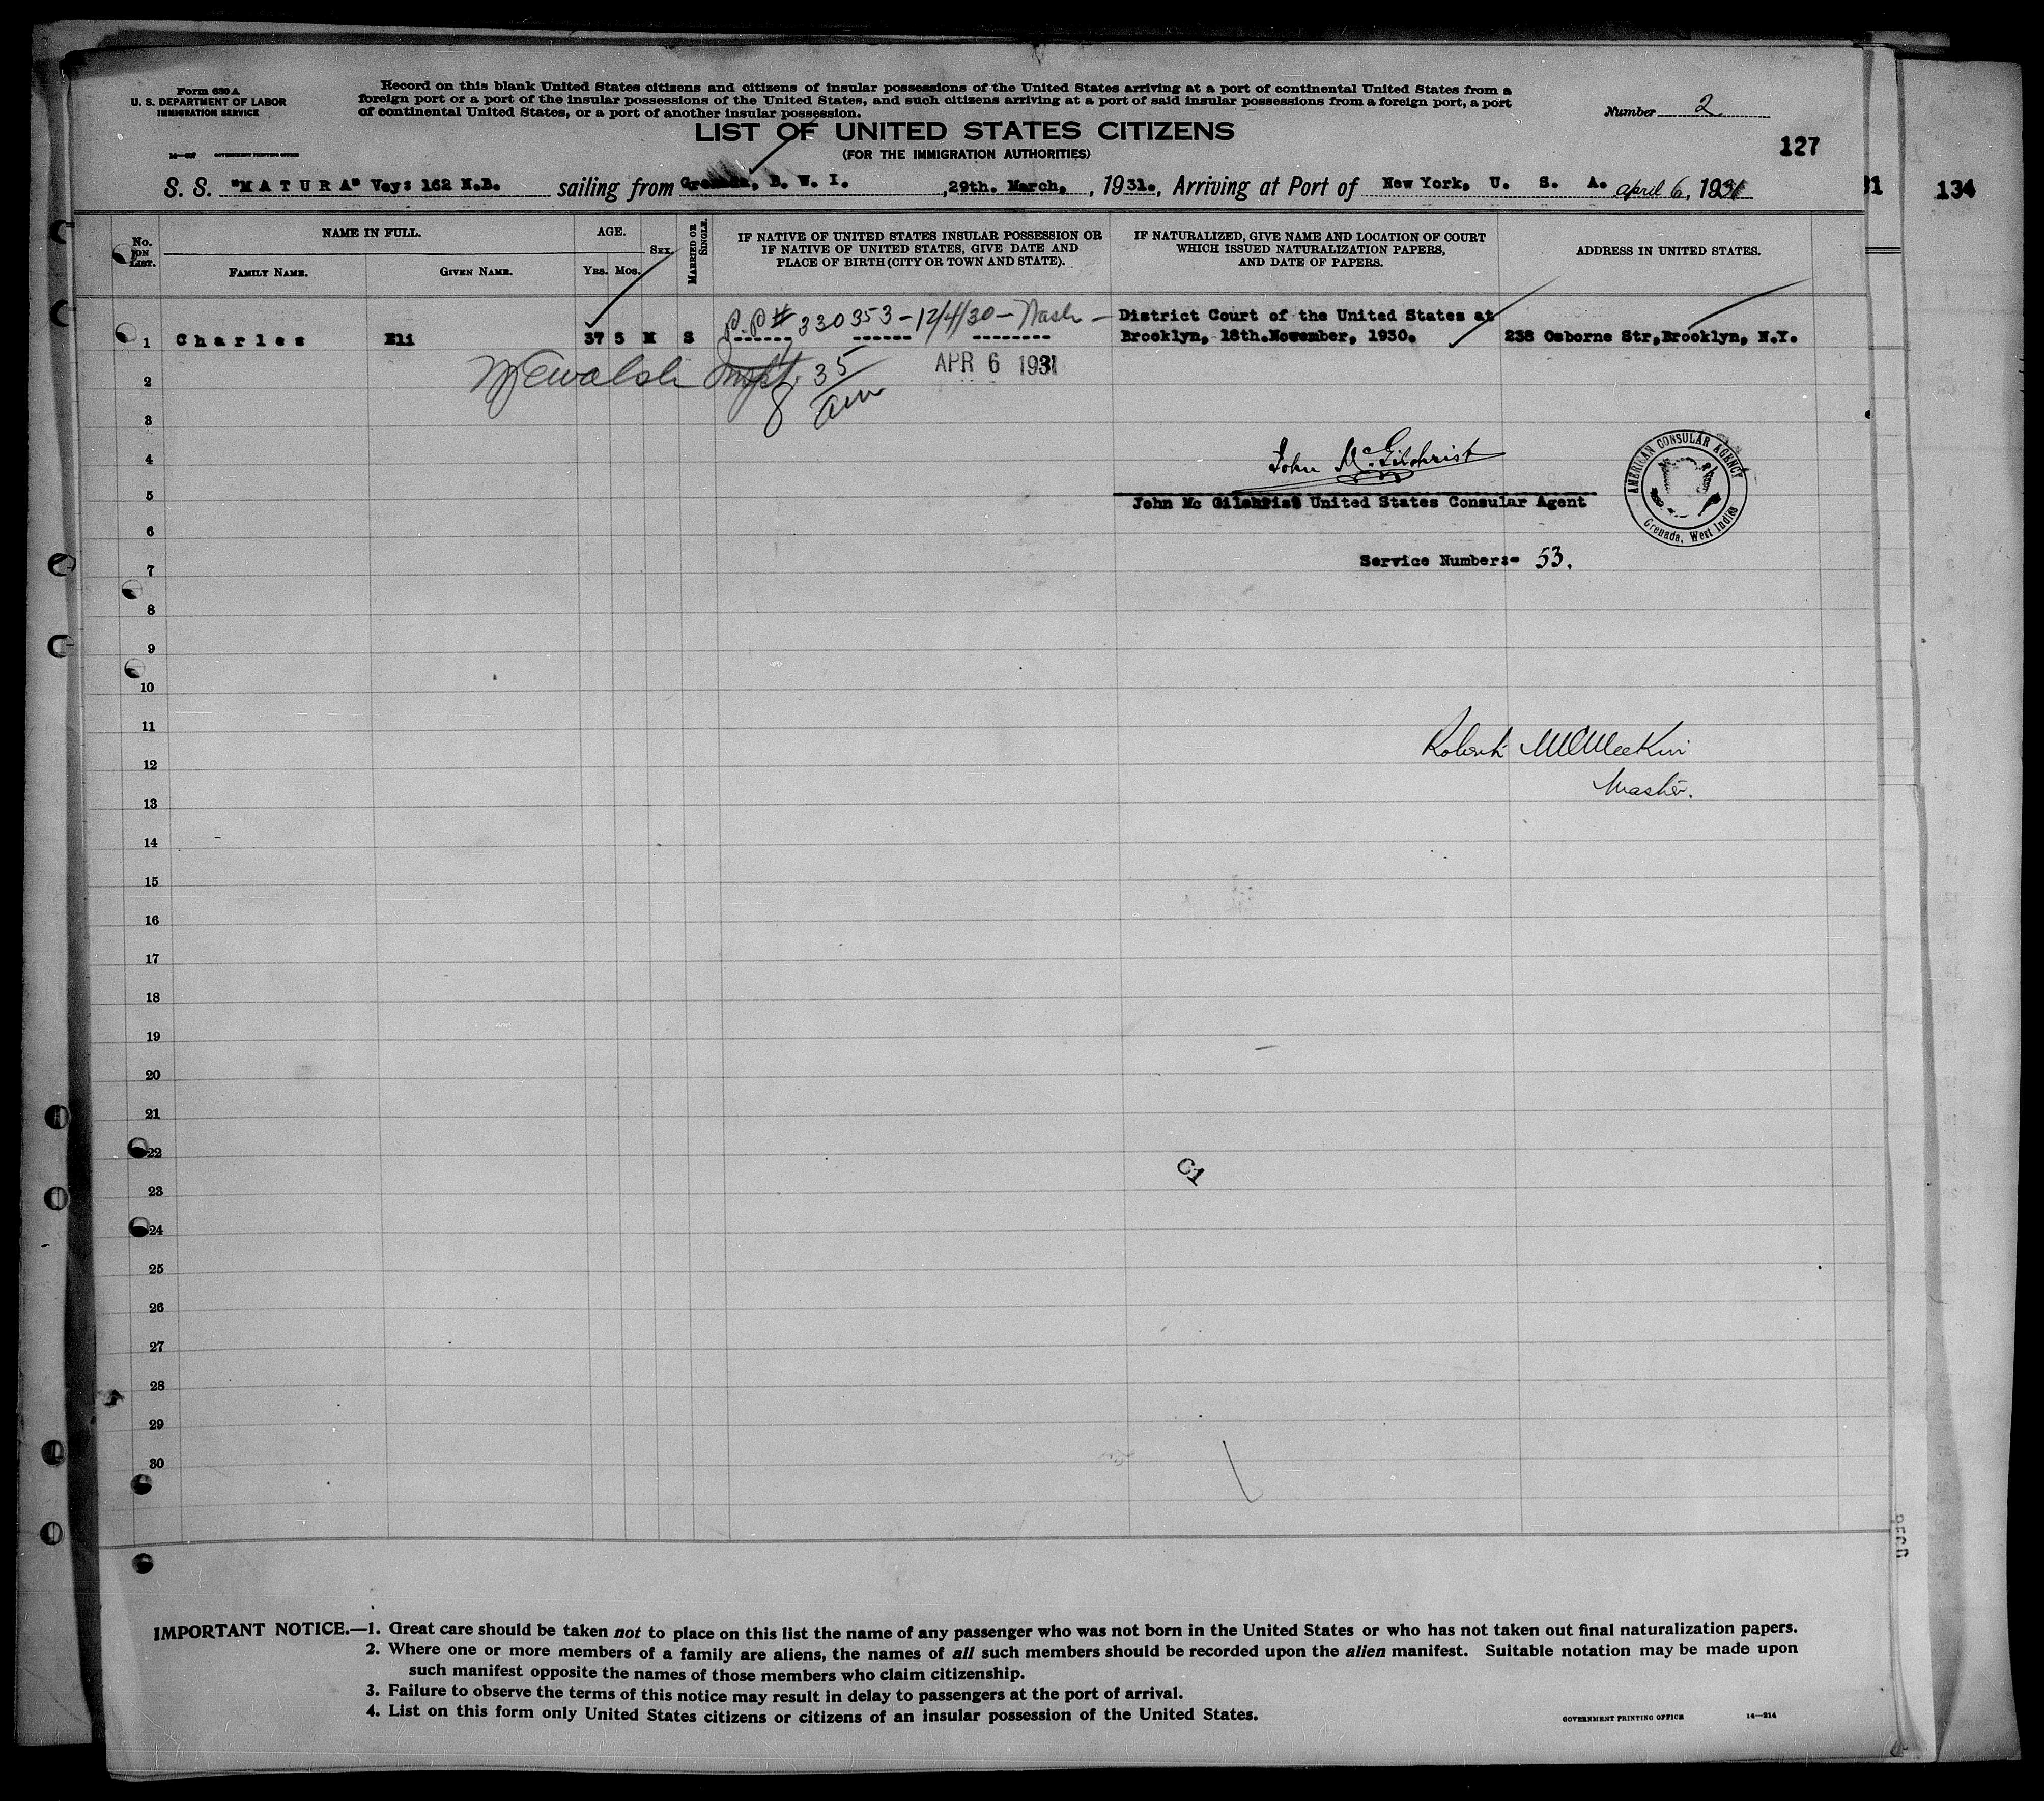 Form 630 A
U. S. DEPARTMENT OF LABOR
IMMIGRATION SERVICE
GOVERNMENT PRINTING OFFICE
Record on this blank United States citizens and citizens of insular possessions of the United States arriving at a port of continental United States from a
foreign port or a port of the insular possessions of the United States, and such citizens arriving at a port of said insular possessions from a foreign port, a port
of continental United States, or a port of another insular possession.
Number 2
LIST OF UNITED STATES CITIZENS
(FOR THE IMMIGRATION AUTHORITIES)
127
S. S. "MATURA" Voy: 162 N.B. sailing from Grenada, B. W. I. , 29th. March, , 1931., Arriving at Port of New York, U. S. A. April 6, 1931
31
134
No. on List.
NAME IN FULL.
Family Name.
Given Name.
AGE.
Yrs. Mos.
Sex.
Married or Single.
IF NATIVE OF UNITED STATES INSULAR POSSESSION OR
IF NATIVE OF UNITED STATES, GIVE DATE AND
PLACE OF BIRTH (CITY OR TOWN AND STATE).
IF NATURALIZED, GIVE NAME AND LOCATION OF COURT
WHICH ISSUED NATURALIZATION PAPERS,
AND DATE OF PAPERS.
ADDRESS IN UNITED STATES.
P.P# 330353-12/4/30-Wash- District Court of the United States at
1 Charles Eli 37 5 M S ------ ------ -------- Brooklyn, 18th.November, 1930. 238 Osborne Str,Brooklyn, N.Y.
2 Walsh Inspt. 35 APR 6 1931
8 am
3
4
John McGilchrist
5
John Mc Gilchrist United States Consular Agent
AMERICAN CONSULAR AGENCY
Grenada, West Indies
6
7 Service Number:- 53.
8
9
10
11
Robert McMeekin
12
Master.
13
14
15
16
17
18
19
20
21
22
C1
23
24
25
26
27
28
29
30
IMPORTANT NOTICE.—1. Great care should be taken not to place on this list the name of any passenger who was not born in the United States or who has not taken out final naturalization papers.
2. Where one or more members of a family are aliens, the names of all such members should be recorded upon the alien manifest. Suitable notation may be made upon
such manifest opposite the names of those members who claim citizenship.
3. Failure to observe the terms of this notice may result in delay to passengers at the port of arrival.
4. List on this form only United States citizens or citizens of an insular possession of the United States.
GOVERNMENT PRINTING OFFICE 14—214